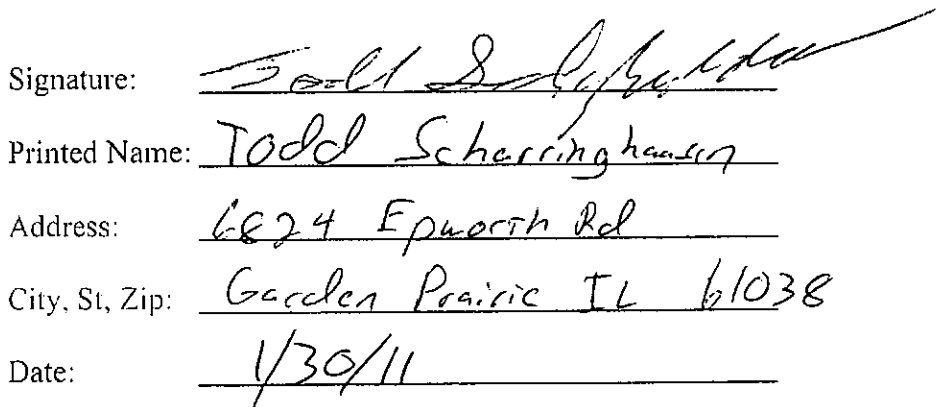 Signature: Todd
Printed Name: Todd Scharringhausen
Address: 6824 Epworth Rd
City, St, Zip: Garden Prairie IL 61038
Date: 1/30/11